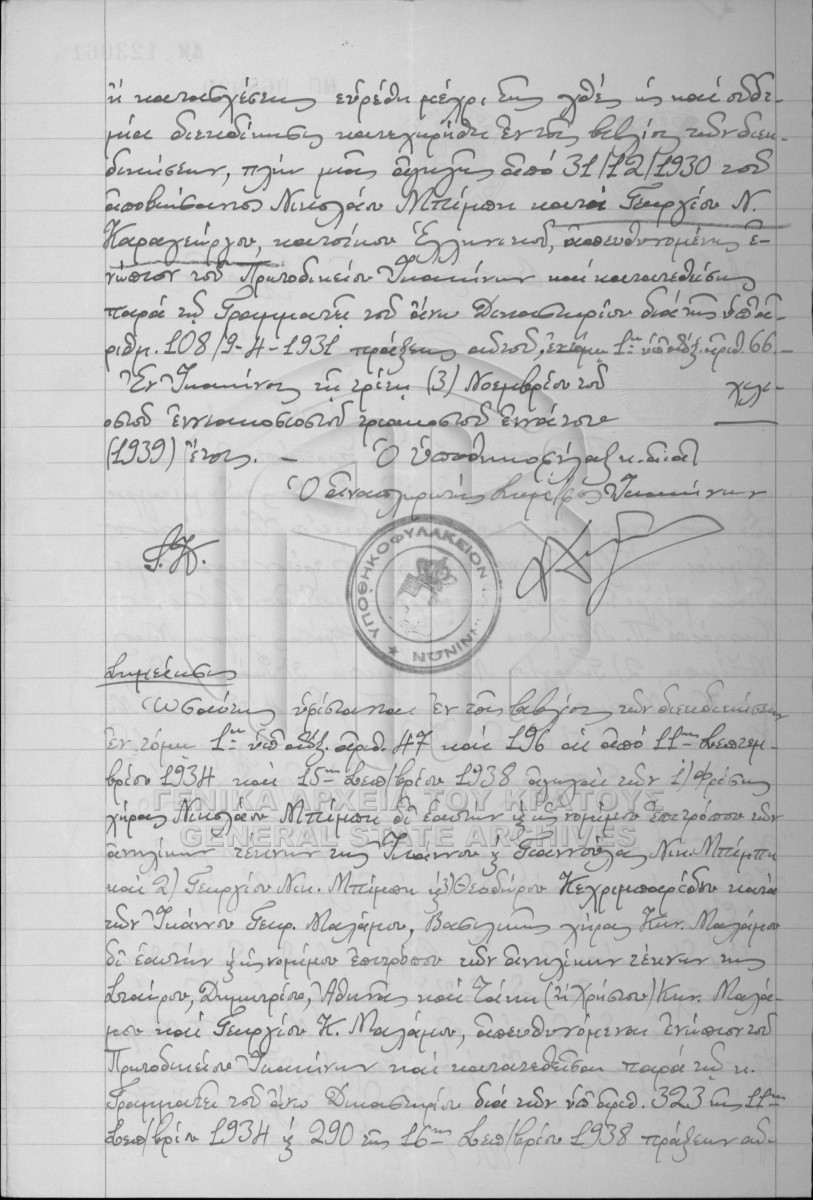 ἢ κατασχέσεως εὑρέθη μέχρι τῆς χθὲς ὡς καὶ οὐδε-
μία διεκδίκησις κατεχωρήθη ἐν τοῖς βιβλίοις τῶν διεκ-
δικήσεων, πλὴν μιᾶς ἀγωγῆς ἀπὸ 31/12/1930 τοῦ
ἀποβιώσαντος Νικολάου Μπέμπη κατὰ Γεωργίου Ν.
Καραγεώργου, κατοίκου Ἑλληνικοῦ, ἀπευθυνομένης ἐ-
νώπιον τοῦ Πρωτοδικείου Ἰωαννίνων καὶ κατατεθείσης
παρὰ τῷ Γραμματεῖ τοῦ ἄνω Δικαστηρίου διὰ τῆς ὑπ' ἀ-
ριθμ. 108/9-4-1931 πράξεως αὐτοῦ, ἐν τόμῳ 1ῳ ὑπ' αὔξ. ἀριθ. 66.-
Ἐν Ἰωαννίνοις τῇ τρίτῃ (3) Νοεμβρίου τοῦ χιλι-
οστοῦ ἐννιακοσιοστοῦ τριακοστοῦ ἐννάτου
(1939) ἔτους. - Ὁ Ὑποθηκοφύλαξ κ.
Ὁ ἀναπληρωτὴς Ἰωαννίνων
ΥΠΟΘΗΚΟΦΥΛΑΚΕΙΟΝ ΙΩΑΝΝΙΝΩΝ
Σημείωσις
Ὡσαύτως ὑφίστανται ἐν τοῖς βιβλίοις τῶν διεκδικήσεων
ἐν τόμῳ 1ῳ ὑπ' αὔξ. ἀριθ. 47 καὶ 196 αἱ ἀπὸ 11ης Σεπτεμ-
βρίου 1934 καὶ 15ης Σεπ/βρίου 1938 ἀγωγαὶ τῶν 1) Φρόσως
χήρας Νικολάου Μπέμπη δι' ἑαυτὴν & ὡς νομίμου ἐπιτρόπου τῶν
ἀνηλίκων τέκνων της Ἰωάννου & Γιαννούλας Νικ. Μπέμπη
καὶ 2) Γεωργίου Νικ. Μπέμπη & 3) Θεοδώρου Κεχριμπαρέδου κατὰ
τῶν Ἰωάννου Γεωρ. Μαλάμου, Βασιλικῆς χήρας Κων. Μαλάμου
δι' ἑαυτὴν & ὡς νομίμου ἐπιτρόπου τῶν ἀνηλίκων τέκνων της
Σταύρου, Δημητρίου, Ἀθηνᾶς καὶ Τάκη (ἢ Χρήστου) Κων. Μαλά-
μου καὶ Γεωργίου Κ. Μαλάμου, ἀπευθυνόμεναι ἐνώπιον τοῦ
Πρωτοδικείου Ἰωαννίνων καὶ κατατεθεῖσαι παρὰ τῷ κ.
Γραμματεῖ τοῦ ἄνω Δικαστηρίου διὰ τῶν ὑπ' ἀριθ. 323 τῆς 11ης
Σεπ/βρίου 1934 & 290 τῆς 16ης Σεπ/βρίου 1938 πράξεων αὐ-
ΓΕΝΙΚΑ ΑΡΧΕΙΑ ΤΟΥ ΚΡΑΤΟΥΣ
GENERAL STATE ARCHIVES